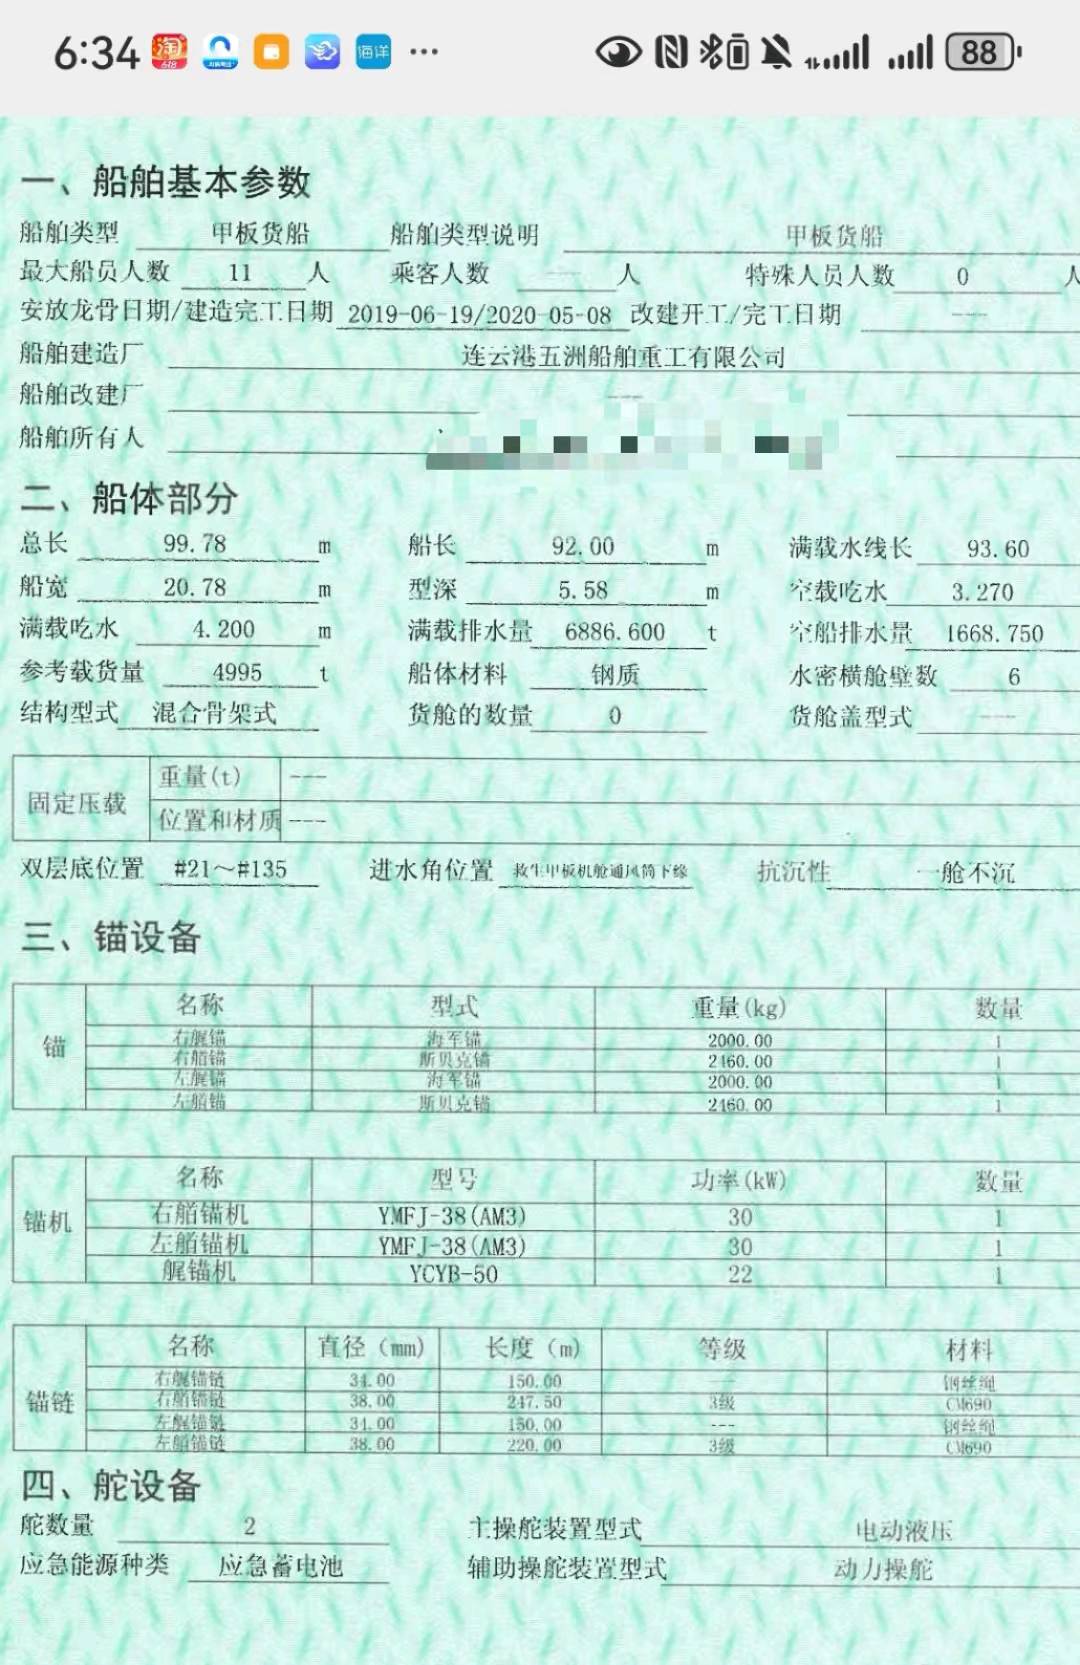 6:34 淘 618 海洋 ··· 88
一、船舶基本参数
船舶类型 甲板货船 船舶类型说明 甲板货船
最大船员人数 11 人 乘客人数 ---- 人 特殊人员人数 0 人
安放龙骨日期/建造完工日期 2019-06-19/2020-05-08 改建开工/完工日期 ----
船舶建造厂 连云港五洲船舶重工有限公司
船舶改建厂 ----
船舶所有人
二、船体部分
总长 99.78 m 船长 92.00 m 满载水线长 93.60
船宽 20.78 m 型深 5.58 m 空载吃水 3.270
满载吃水 4.200 m 满载排水量 6886.600 t 空船排水量 1668.750
参考载货量 4995 t 船体材料 钢质 水密横舱壁数 6
结构型式 混合骨架式 货舱的数量 0 货舱盖型式 ----
固定压载 重量(t) ---
位置和材质 ---
双层底位置 #21～#135 进水角位置 救生甲板机舱通风筒下缘 抗沉性 一舱不沉
三、锚设备
锚 名称 型式 重量(kg) 数量
右艉锚 海军锚 2000.00 1
右艏锚 斯贝克锚 2460.00 1
左艉锚 海军锚 2000.00 1
左艏锚 斯贝克锚 2460.00 1
锚机 名称 型号 功率(kW) 数量
右艏锚机 YMFJ-38(AM3) 30 1
左艏锚机 YMFJ-38(AM3) 30 1
艉锚机 YCYB-50 22 1
锚链 名称 直径（mm） 长度（m） 等级 材料
右艉锚链 34.00 150.00 --- 钢丝绳
右艏锚链 38.00 247.50 3级 CM690
左艉锚链 34.00 150.00 --- 钢丝绳
左艏锚链 38.00 220.00 3级 CM690
四、舵设备
舵数量 2 主操舵装置型式 电动液压
应急能源种类 应急蓄电池 辅助操舵装置型式 动力操舵